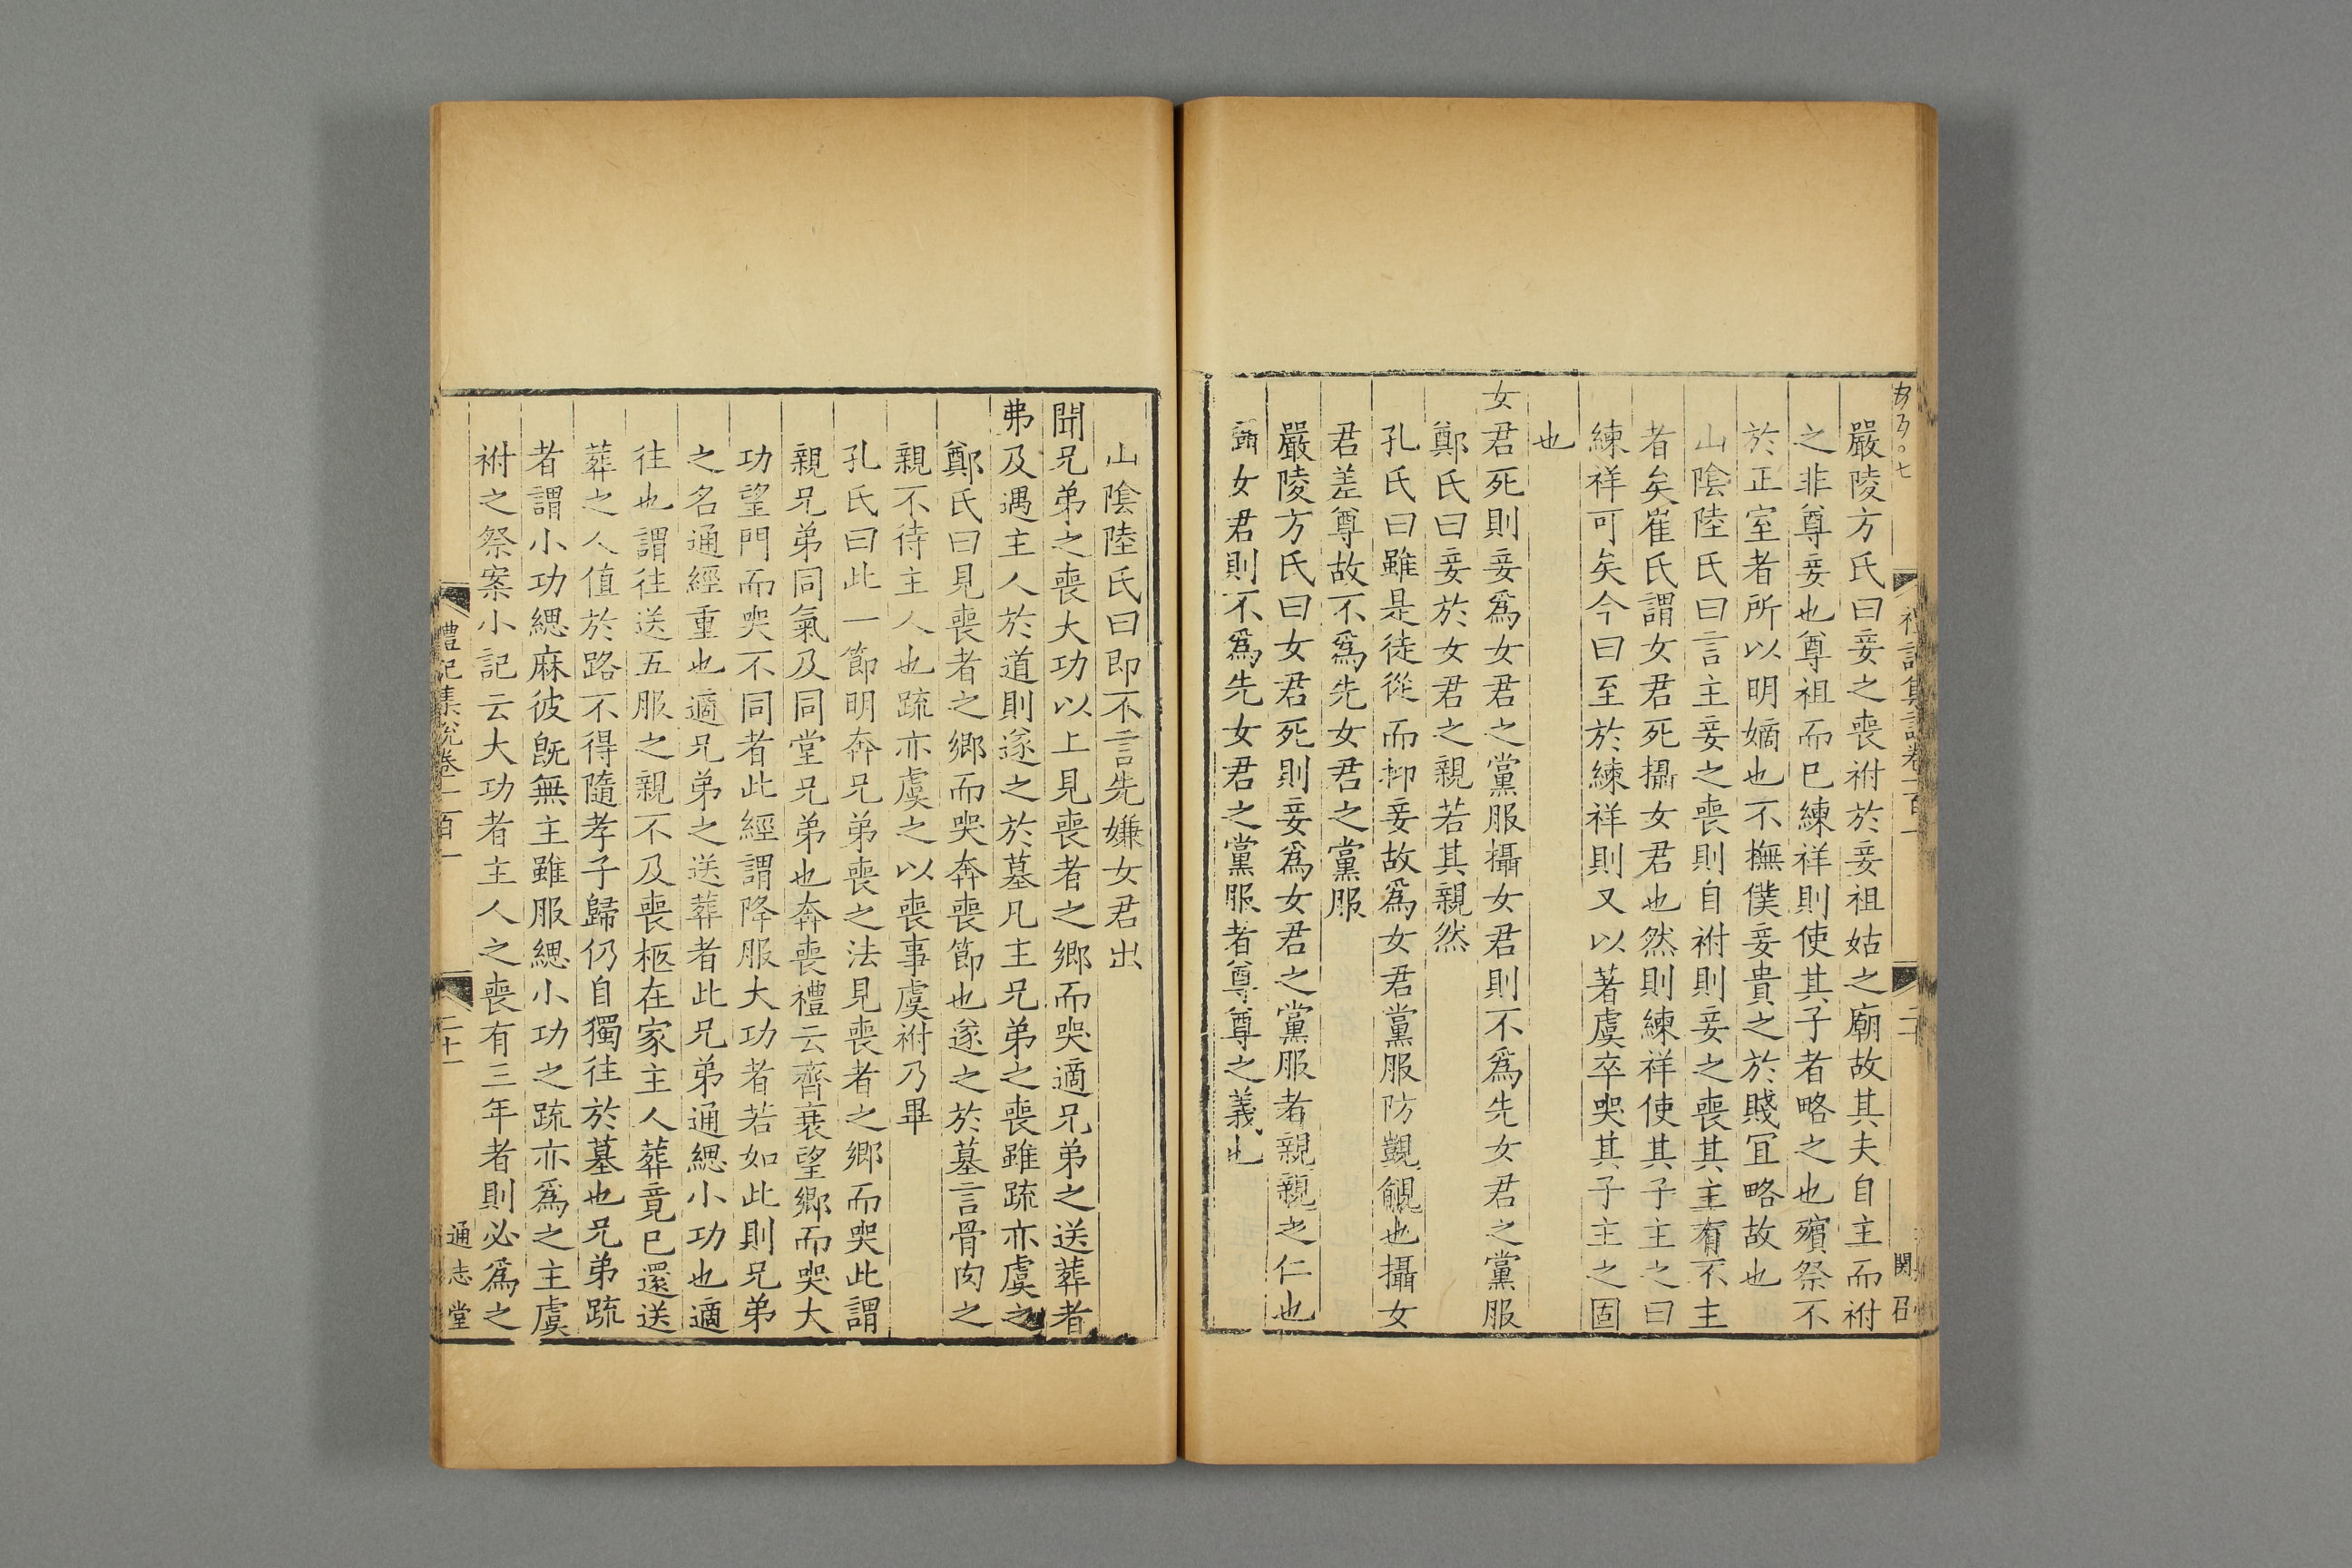 嚴陵方氏曰妾之喪祔於妾祖姑之廟故其夫自主而祔
之非尊妾也尊祖而已練祥則使其子者略之也殯祭不
於正室者所以明嫡也不撫僕妾貴之於賤冝略故也
山陰陸氏曰言主妾之喪則自祔則妾之喪其主有不主
者矣崔氏謂女君死攝女君也然則練祥使其子主之曰
練祥可矣今曰至於練祥則又以著虞卒哭其子主之固
也
女君死則妾爲女君之黨服攝女君則不爲先女君之黨服
鄭氏曰妾於女君之親若其親然
孔氏曰雖是徒從而抑妾故爲女君黨服防覬覦也攝女
君差尊故不爲先女君之黨服
嚴陵方氏曰女君死則妾爲女君之黨服者親親之仁也
攝女君則不爲先女君之黨服者尊尊之義也
禮記集說卷一百一
二十
山陰陸氏曰即不言先嫌女君出
聞兄弟之喪大功以上見喪者之鄉而哭適兄弟之送葬者
弗及遇主人於道則遂之於墓凡主兄弟之喪雖疏亦虞之
鄭氏曰見喪者之鄉而哭奔喪節也遂之於墓言骨肉之
親不待主人也疏亦虞之以喪事虞祔乃畢
孔氏曰此一節明奔兄弟喪之法見喪者之鄉而哭此謂
親兄弟同氣及同堂兄弟也奔喪禮云齊衰望鄉而哭大
功望門而哭不同者此經謂降服大功者若如此則兄弟
之名通經重也適兄弟之送葬者此兄弟通緦小功也適
往也謂往送五服之親不及喪柩在家主人葬竟已還送
葬之人值於路不得隨孝子歸仍自獨往於墓也兄弟疏
者謂小功緦麻彼旣無主雖服緦小功之疏亦爲之主虞
祔之祭案小記云大功者主人之喪有三年者則必爲之
禮記集說卷一百一
二十一
通志堂